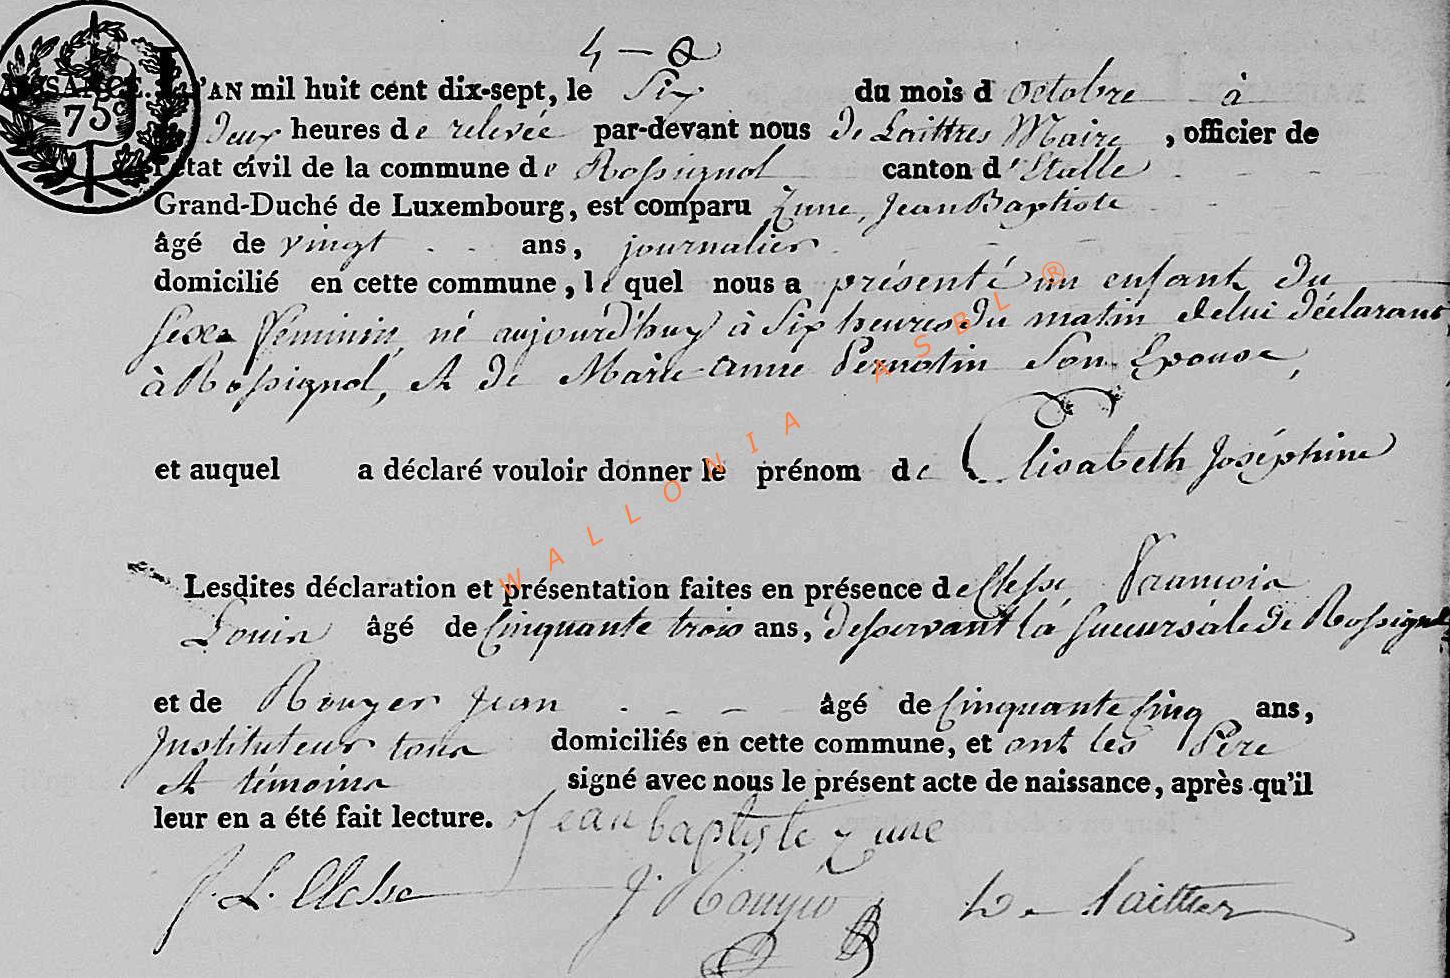 4
NAISSANCE. L'AN mil huit cent dix-sept, le Six du mois d octobre à
75c deux heures de relevée par-devant nous de Laittres Maire, officier de
l'état civil de la commune de Rossignol canton d'Etalle
Grand-Duché de Luxembourg, est comparu Zune, Jean Baptiste
âgé de vingt ans, journalier
domicilié en cette commune, le quel nous a présenté un enfant du
Sexe Feminin, né aujourd'huy à Six heures du matin de lui déclarant
à Rossignol, et de Marie anne Pernotin Son Epouse,
et auquel a déclaré vouloir donner le prénom de Elisabeth Joséphine
Lesdites déclaration et présentation faites en présence de Clesse,
Louis âgé de Cinquante trois ans, desservant la succursale de Rossignol
et de Rouyer Jean âgé de Cinquante Cinq ans,
Instituteur tous domiciliés en cette commune, et ont les Père
et témoins signé avec nous le présent acte de naissance, après qu'il
leur en a été fait lecture. Jean baptiste Zune
J. L. Clesse J. Rouyer De Laittres
WALLONIA ASBL ®